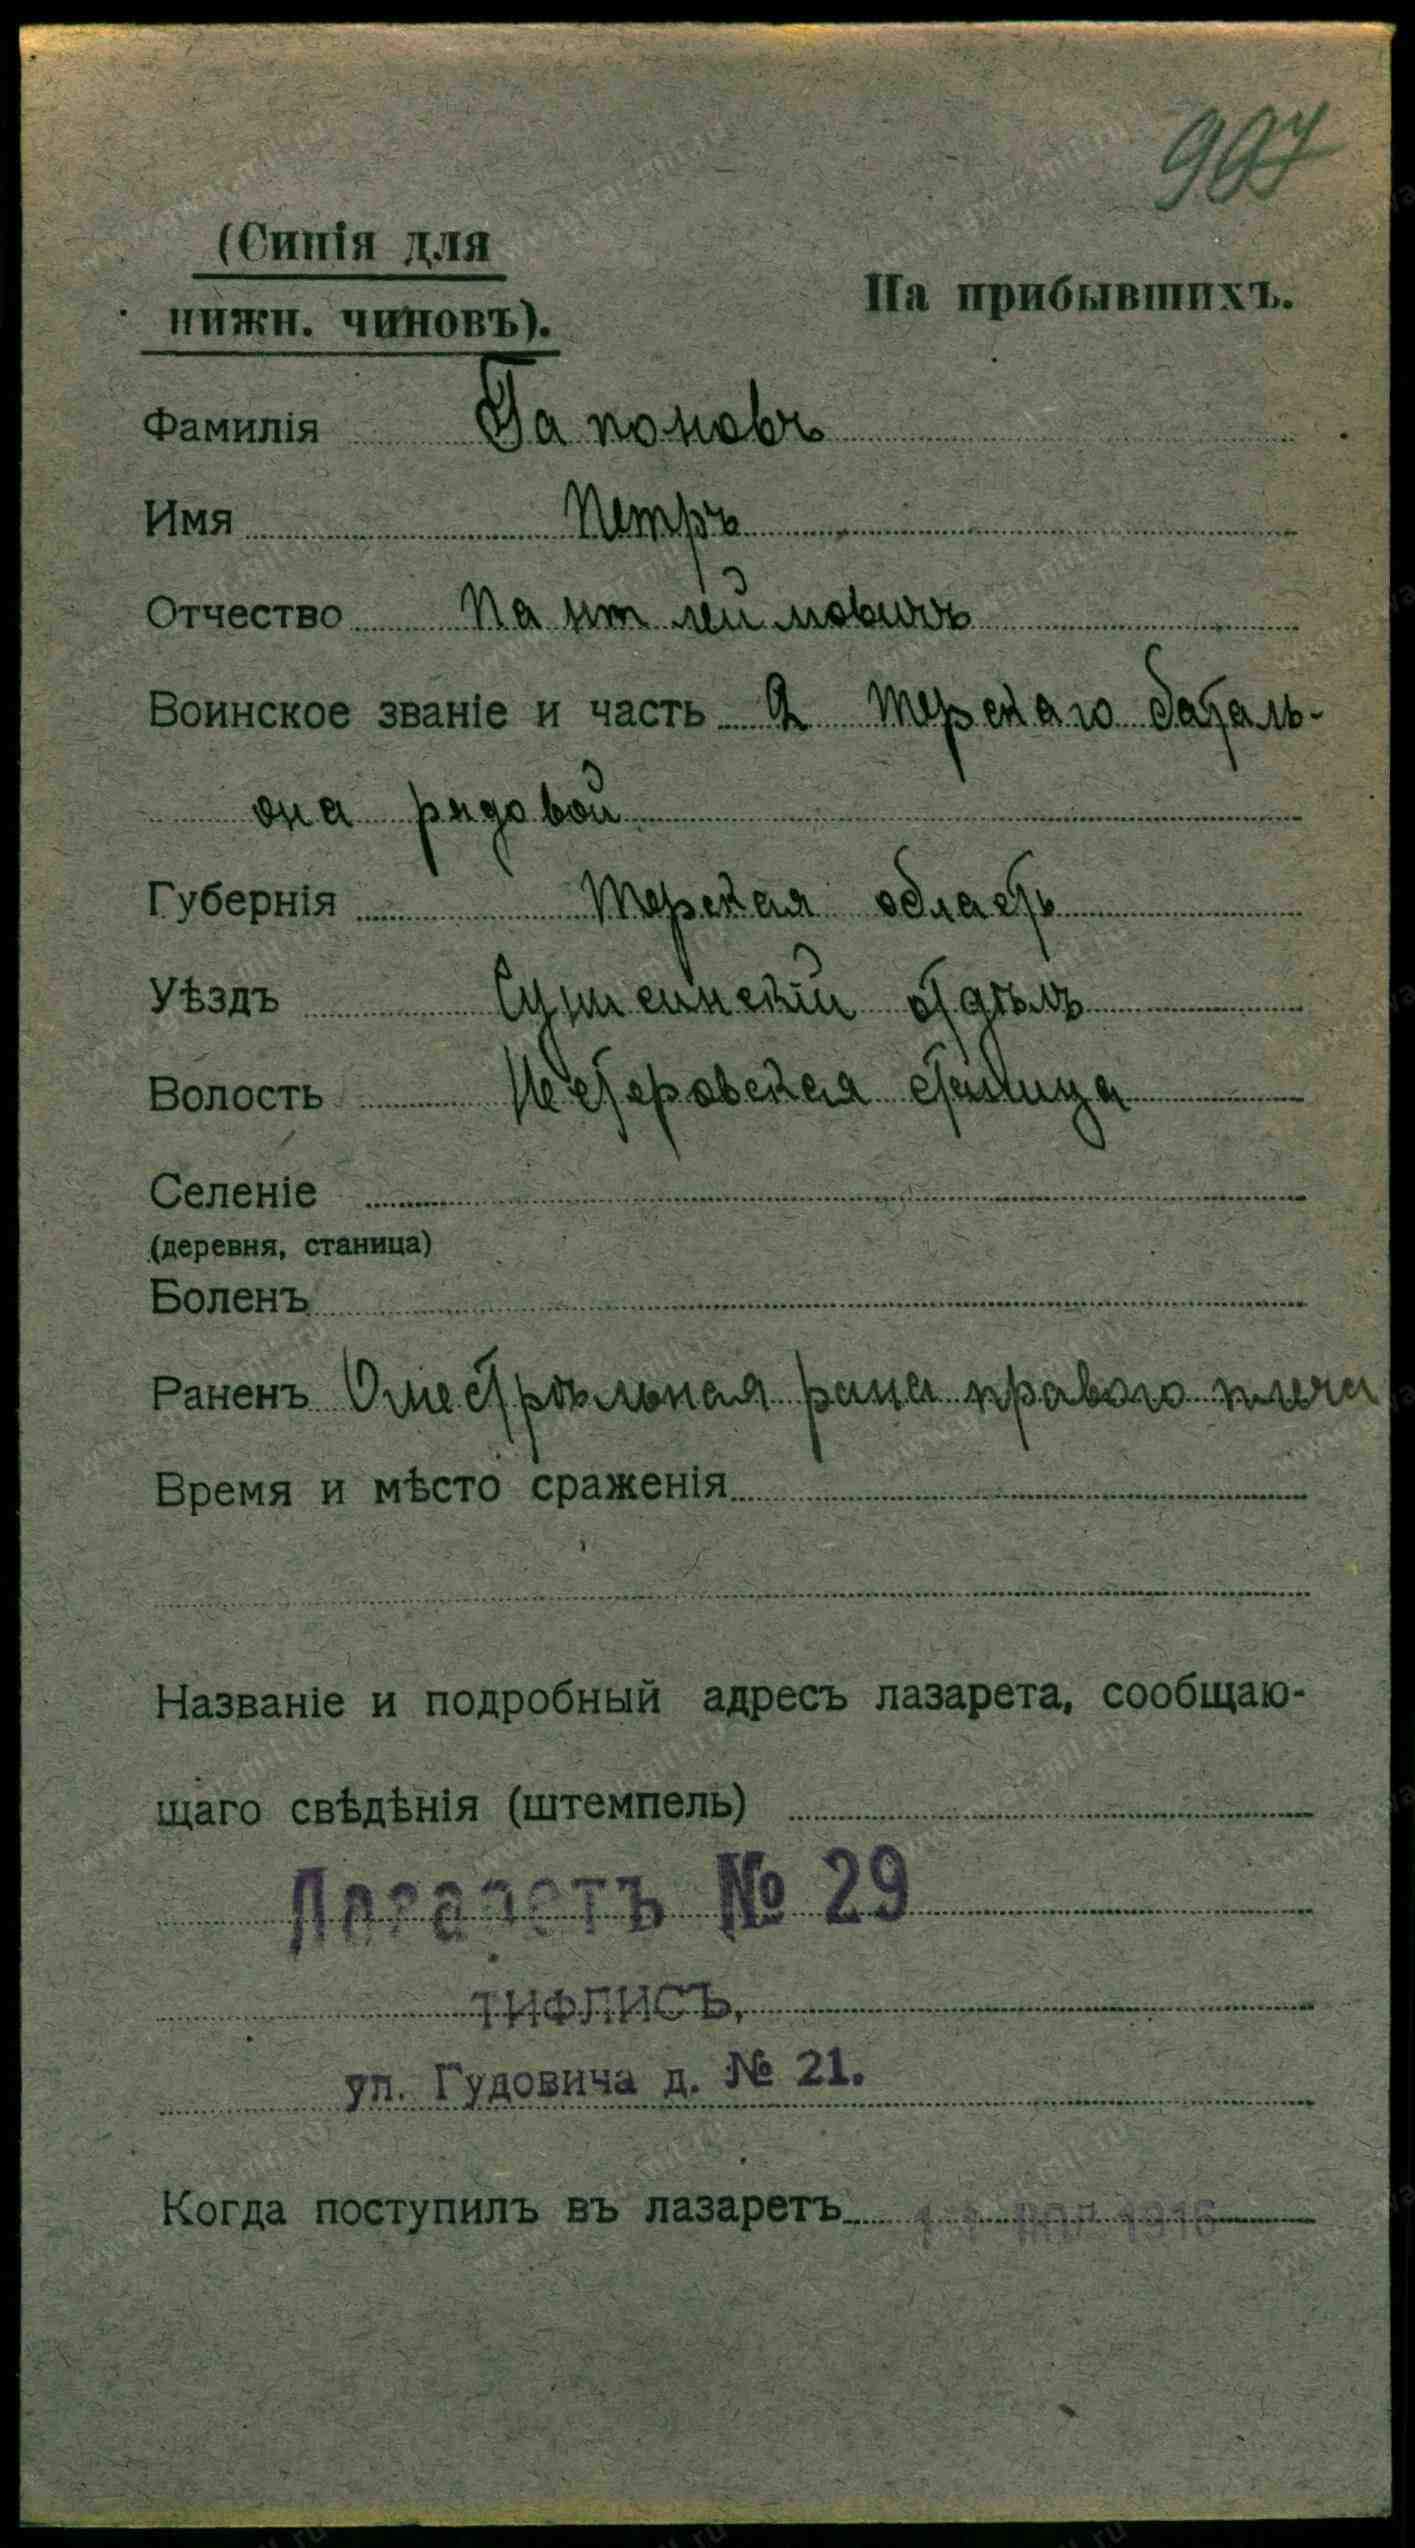 907
(Синія для
нижн. чиновъ).
На прибывшихъ.
Фамилія Гапоновъ
Имя Петръ
Отчество Пантлеймовичъ
Воинское званіе и часть 2 Терскаго баталь-
она рядовой
Губернія Терская область
Уѣздъ Сунженскій отдѣлъ
Волость Нестеровская станица
Селеніе
(деревня, станица)
Боленъ
Раненъ Огнестрѣльная рана праваго плеча
Время и мѣсто сраженія
Названіе и подробный адресъ лазарета, сообщаю-
щаго свѣдѣнія (штемпель)
Лазаретъ № 29
ТИФЛИСЪ,
ул. Гудовича д. № 21.
Когда поступилъ въ лазаретъ 1916